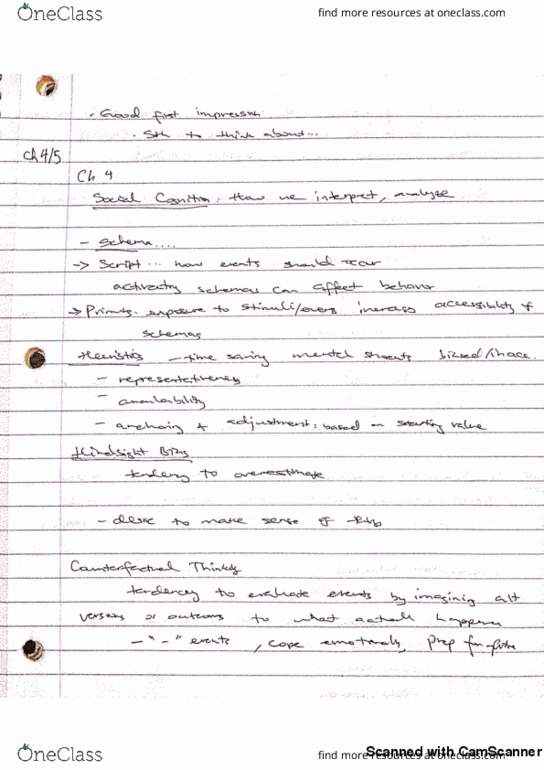 OneClass
find more resources at oneclass.com
• Good first impression
• Sth to think about...
Ch 4/5
Ch 4
Social Cognition: How we interpret, analyze
- Schema....
-> Script... how events should occur
activating schemas can affect behavior
-> Priming. exposure to stimuli/events increases accessibility of
schemas
Heuristics - time saving mental shortcuts biased/inacc.
- representativeness
- availability
- anchoring + adjustment: based on starting value
Hindsight Bias
tendency to overestimate
- desire to make sense of
Counterfactual Thinking
tendency to evaluate events by imagining alt
versions or outcomes to what actually happened
- "-" events, cope emotionally, prep for future
OneClass
find more resources at oneclass.com
Scanned with CamScanner